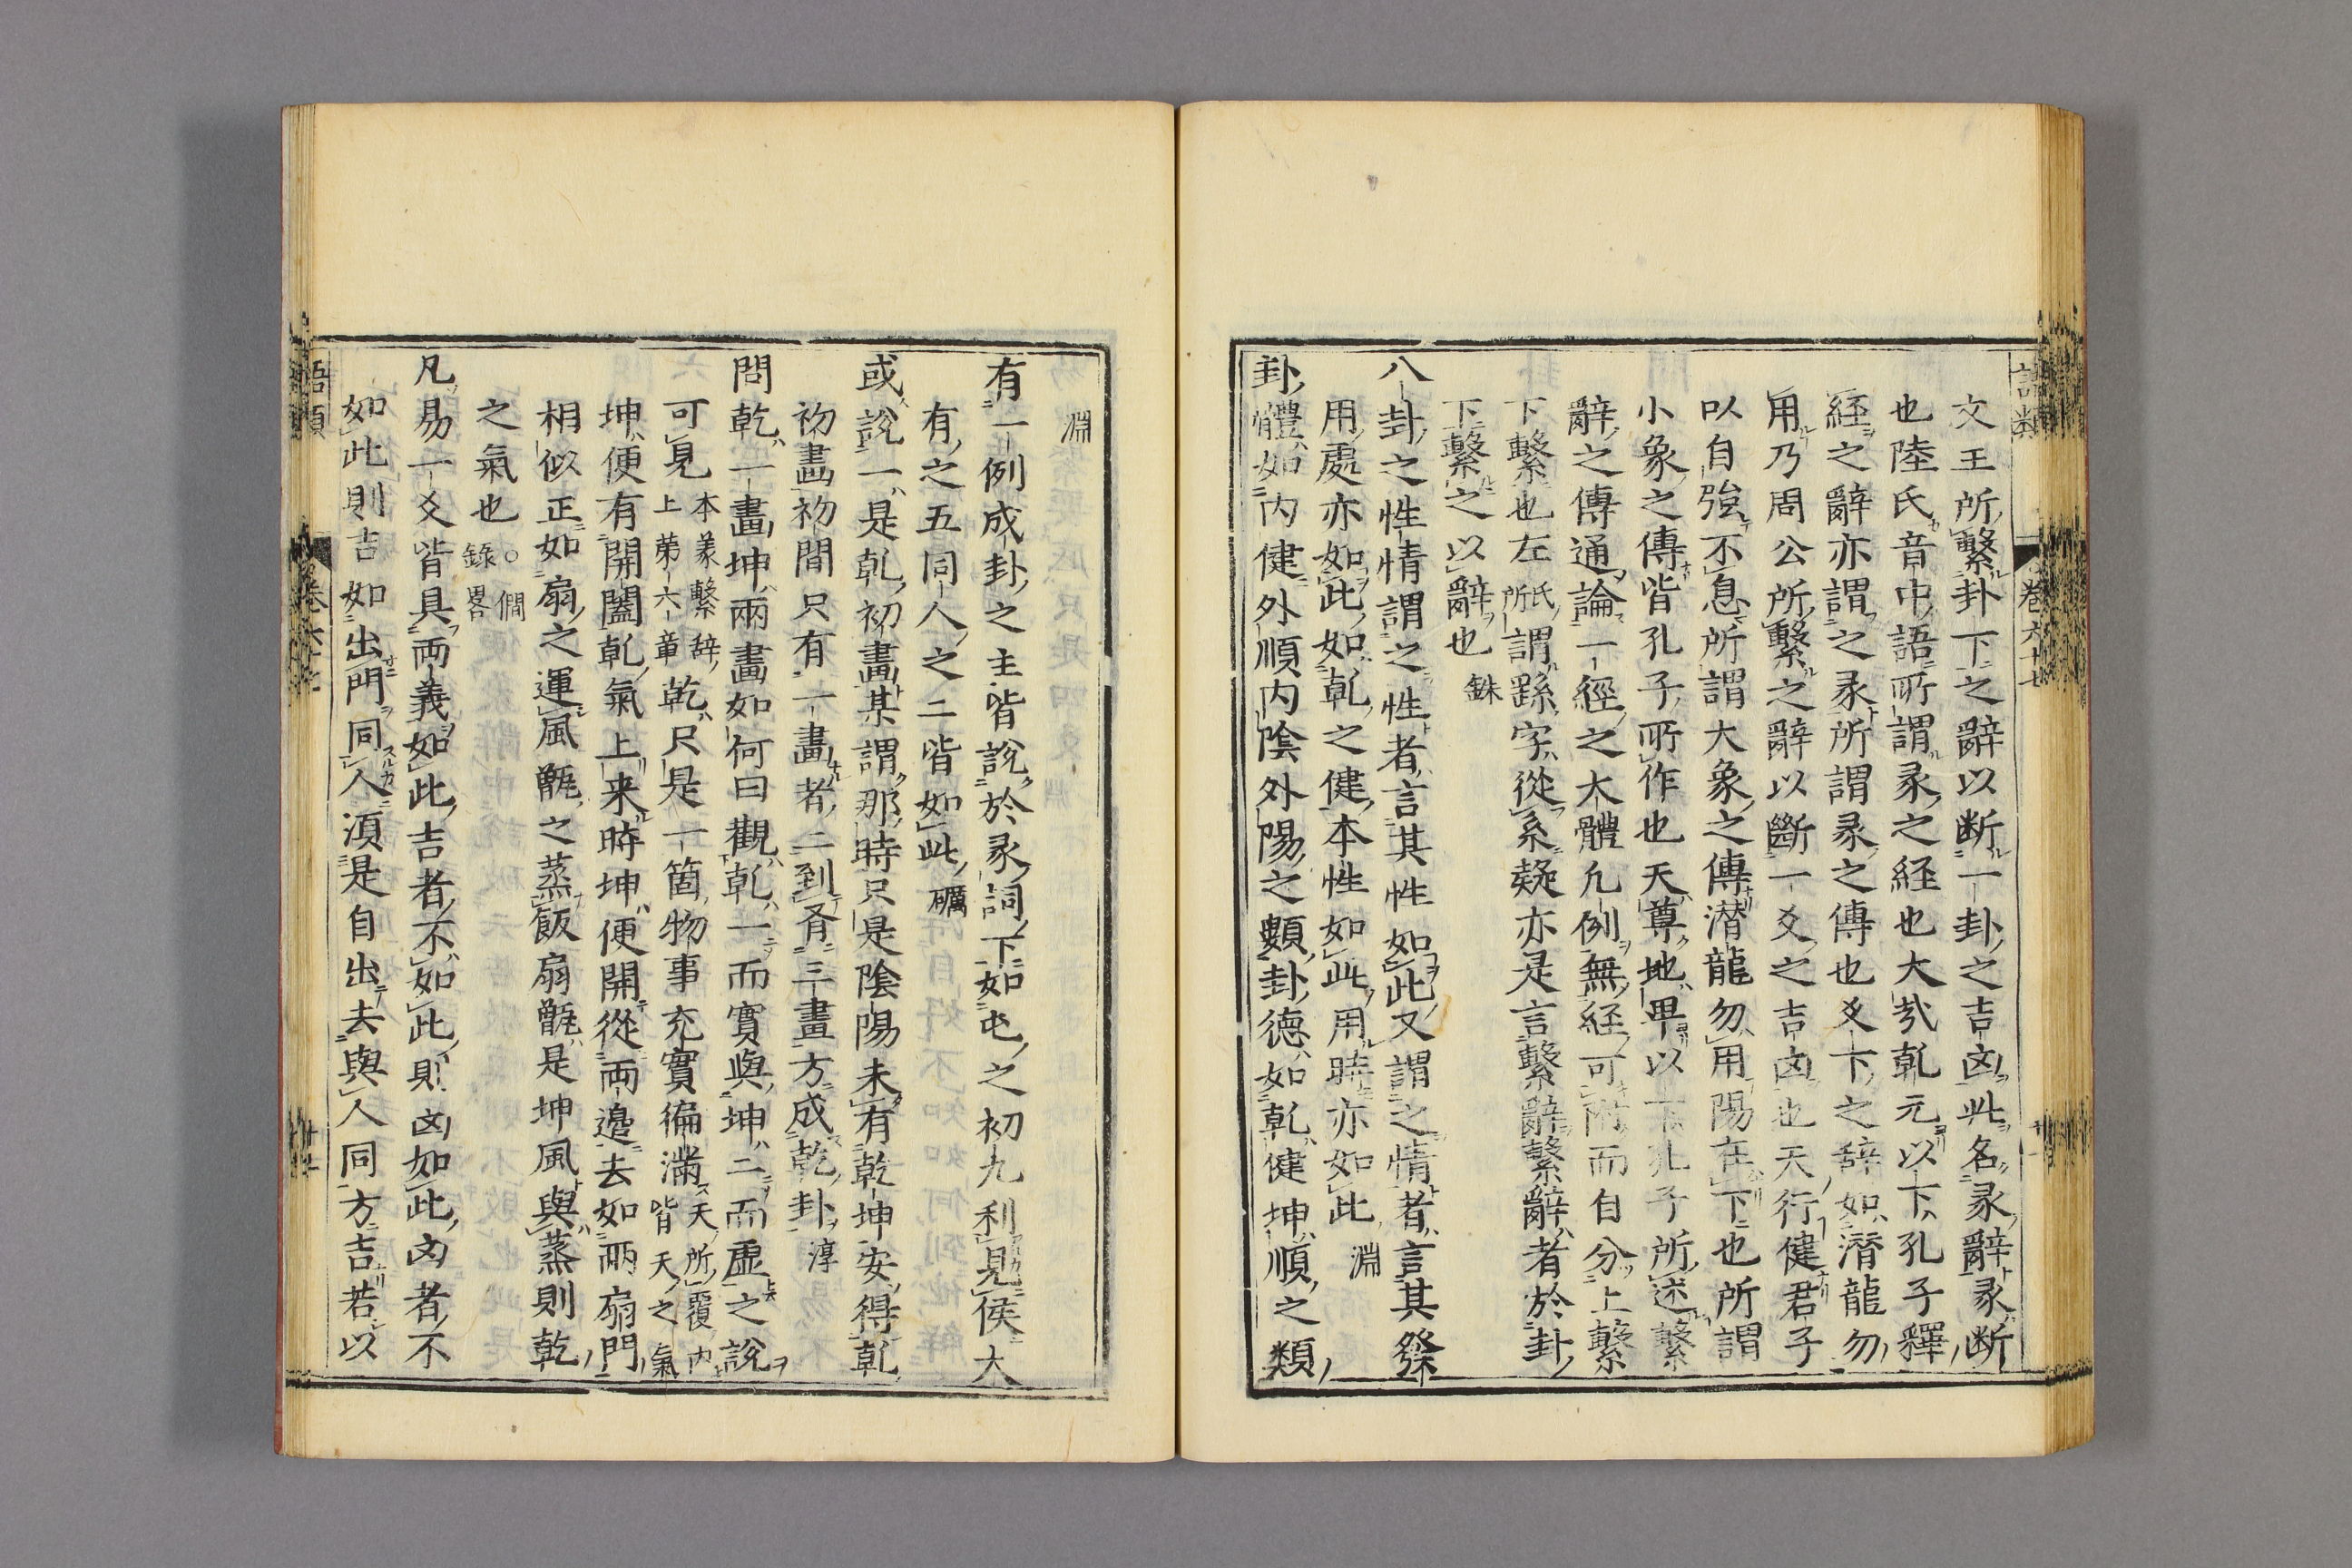 語類 卷六十七
文王所繫卦下之辭以断一卦之吉凶此名彖辭彖断
也陸氏音中語所謂彖之経也大哉乹元以下孔子釋
経之辭亦謂之彖所謂彖之傳也爻下之辞如潛龍勿
用乃周公所繫之辭以斷一爻之吉凶也天行健君子
以自強不息所謂大象之傳潜龍勿用陽在下也所謂
小象之傳皆孔子所作也天尊地卑以下孔子所述繫
辭之傳通論一經之大體凢例無経可附而自分上繫
下繫也左氏所謂繇字從系疑亦是言繫辭繫辭者於卦
下繫之以辭也 銖
八卦之性情謂之性者言其性如此又謂之情者言其發
用處亦如此如乹之健本性如此用時亦如此 淵
卦體如内健外順内陰外陽之類卦德如乹健坤順之類
淵
有一例成卦之主皆說於彖詞下如屯之初九利見侯大
有之五同人之二皆如此 礪
或說一是乹初畫某謂那時只是陰陽未有乾坤安得乹
初畫初間只有一畫者二到有三畫方成乾卦 淳
問乾一畫坤兩畫如何曰觀乹一而實與坤二而虛之說
可見 本義繫辞上第六章 乾只是一箇物事充實徧滿 天所覆内皆天之氣
坤便有開闔乹氣上来時坤便開從両邉去如兩扇門
相似正如扇之運風甑之蒸飯扇甑是坤風與蒸則乾
之氣也 ○僩録畧
凡易一爻皆具両義如此吉者不如此則凶如此凶者不
如此則吉如出門同人須是自出去與人同方吉若以
語類 卷六十七